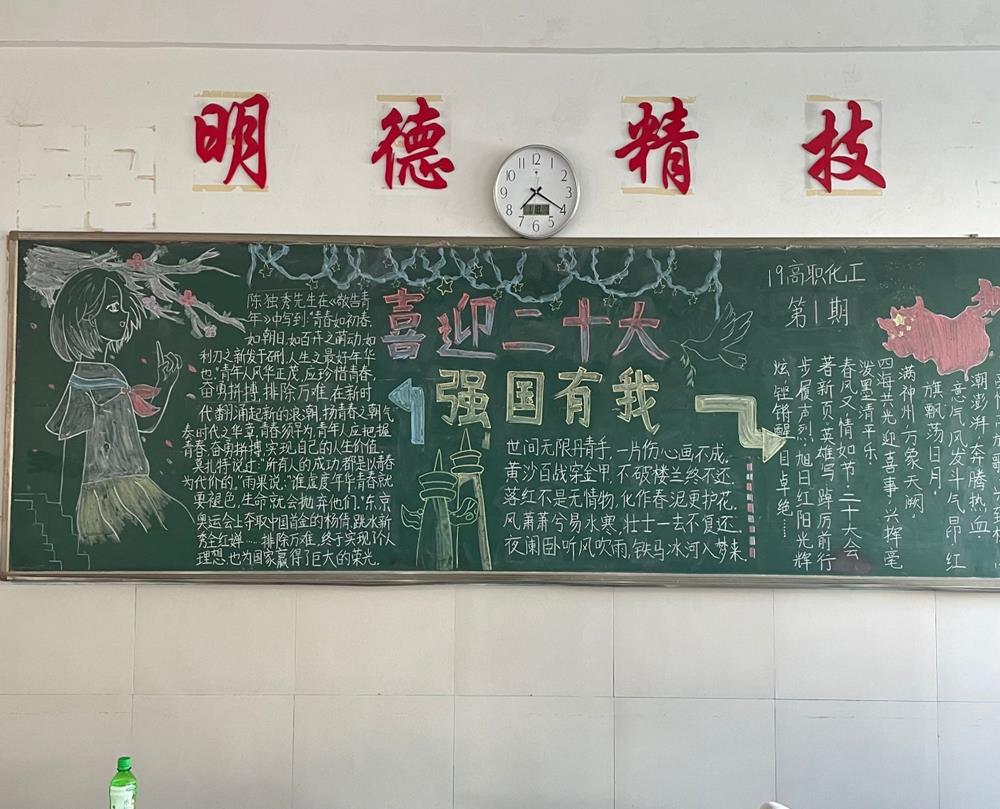 明德精技
喜迎二十大
强国有我
19高职化工
第1期
陈独秀先生在《敬告青
年》中写到:“青春如初春,
如朝日,如百卉之萌动,如
利刃之新发于硎,人生之最好年华
也”青年人风华正茂,应珍惜青春,
奋勇拼搏,排除万难,在新时
代翻涌起新的浪潮,扬青春之朝气,
奏时代之华章,青春须早为,青年人应把握
青春,奋勇拼搏,实现自己的人生价值。
莫扎特说过:“所有人的成功都是以青春
为代价的。”雨果说:“谁虚度年华青春就
要褪色,生命就会抛弃他们。”东京
奥运会上夺取中国首金的杨倩,跳水新
秀全红婵……排除万难,终于实现个人
理想,也为国家赢得了巨大的荣光。
世间无限丹青手,一片伤心画不成。
黄沙百战穿金甲,不破楼兰终不还。
落红不是无情物,化作春泥更护花。
风萧萧兮易水寒,壮士一去不复还。
夜阑卧听风吹雨,铁马冰河入梦来。
潮澎湃,奔腾热血
意气风发斗气昂,红
旗飘荡日月。
满神州万象天阙,
四海共光迎喜事,兴挥毫
泼墨清平乐。
春风又情如节,二十大会
著新页,英雄写踔厉前行
步履声烈,旭日红阳光辉
炫铿锵醒目卓绝……